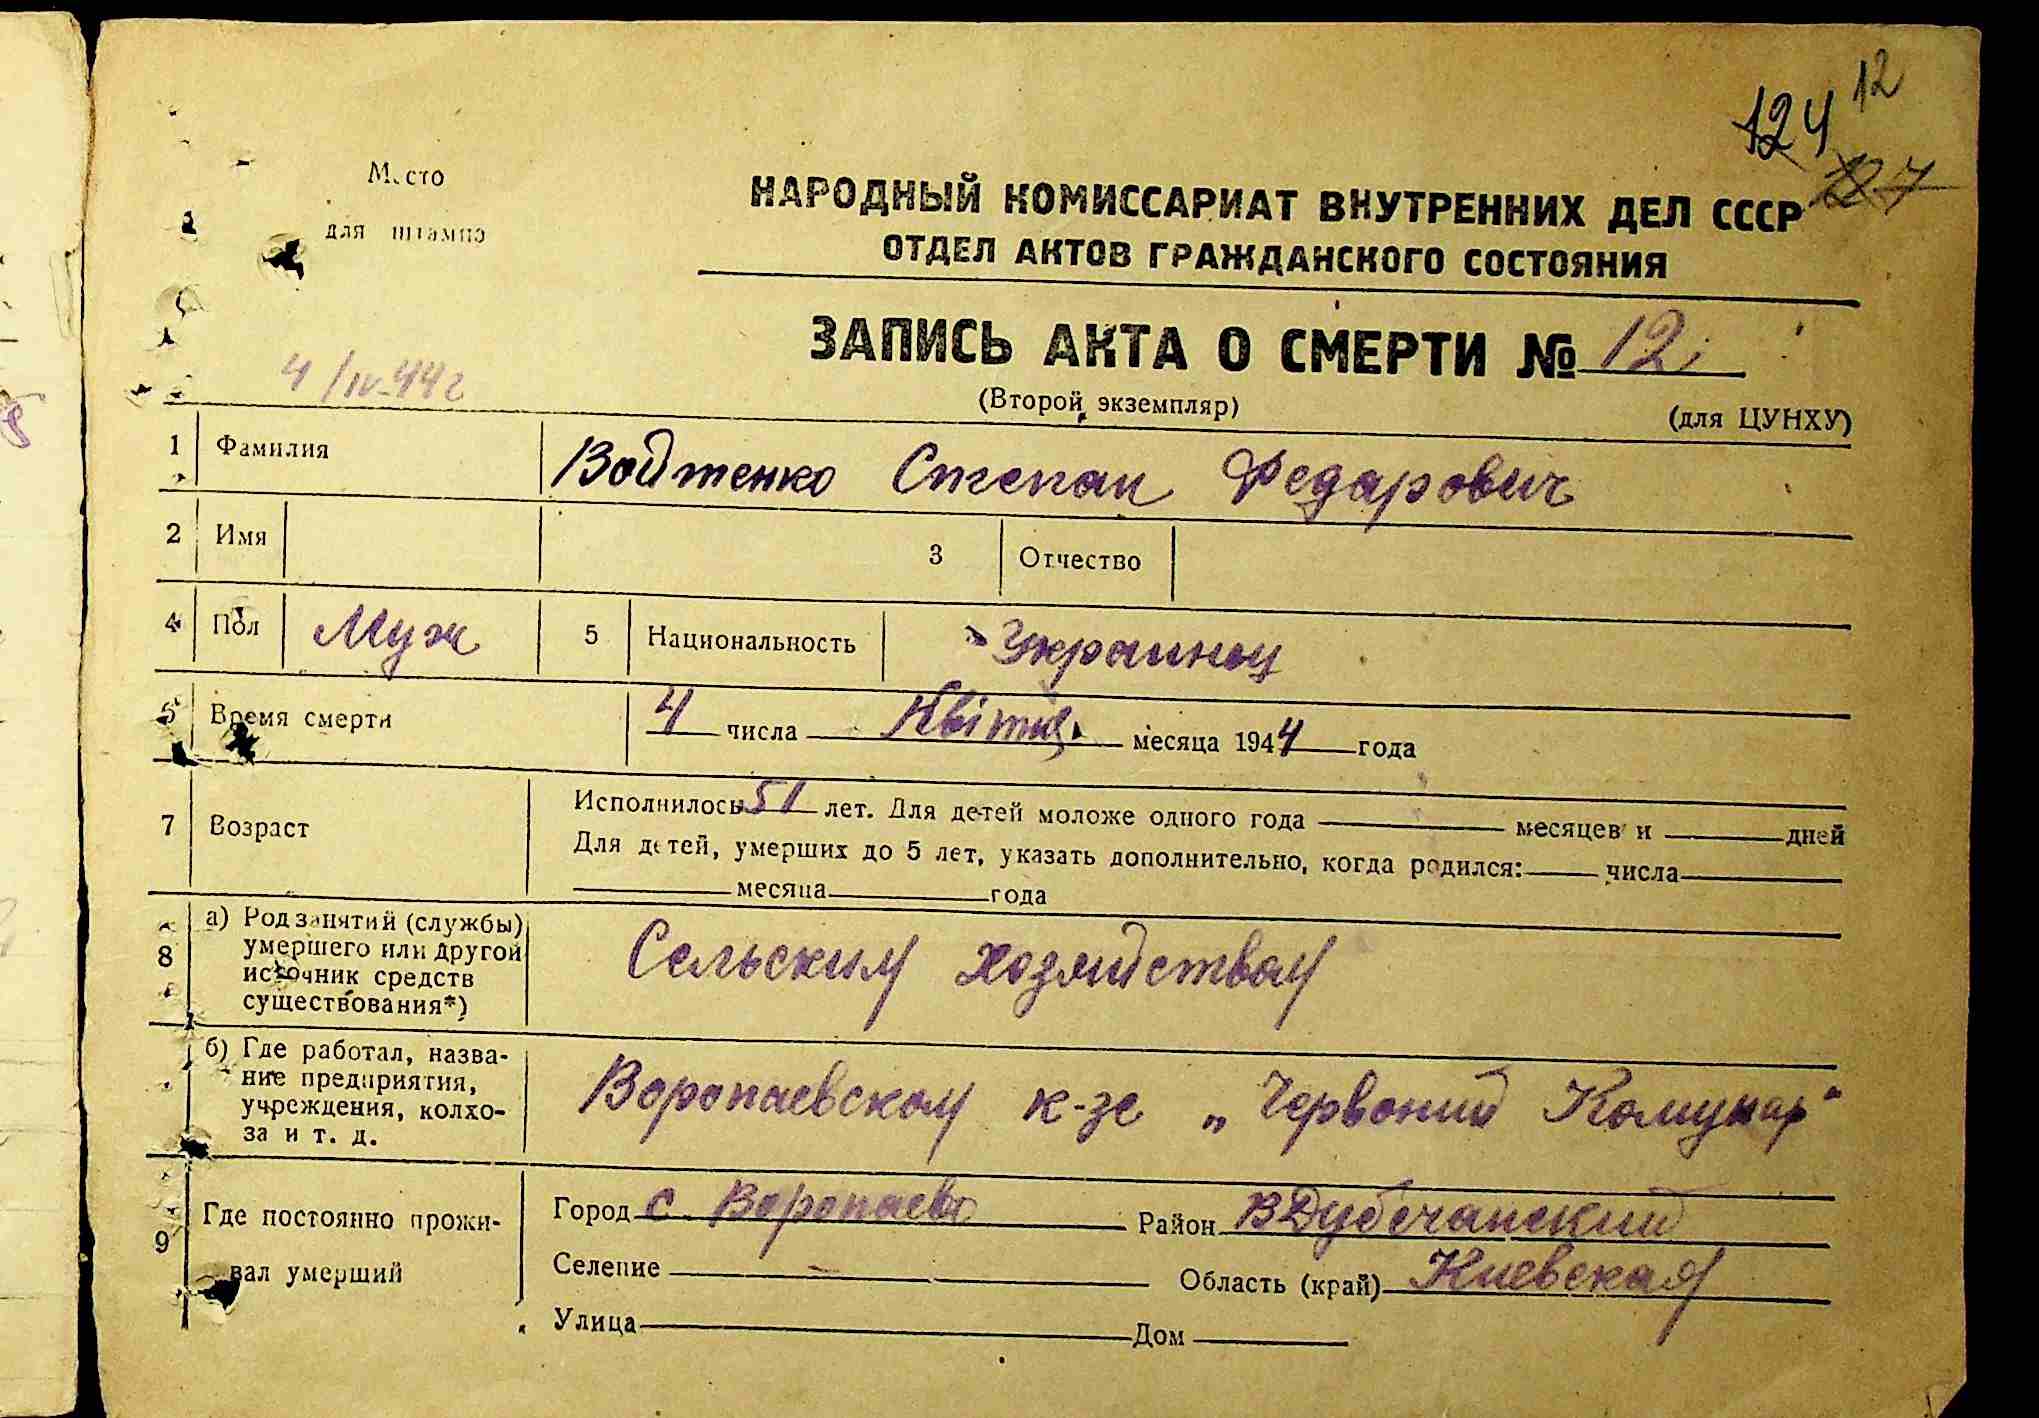 12
124
127
Место
для штампа
НАРОДНЫЙ КОМИССАРИАТ ВНУТРЕННИХ ДЕЛ СССР
ОТДЕЛ АКТОВ ГРАЖДАНСКОГО СОСТОЯНИЯ
ЗАПИСЬ АКТА О СМЕРТИ № 12
4/IV-44 г
(Второй экземпляр)
(для ЦУНХУ)
1 Фамилия Войтенко Степан Федарович
2 Имя 3 Отчество
4 Пол Муж 5 Национальность Украинец
6 Время смерти 4 числа Квітня месяца 1944 года
7 Возраст Исполнилось 51 лет. Для детей моложе одного года месяцев и дней
Для детей, умерших до 5 лет, указать дополнительно, когда родился: числа
месяца года
8 а) Род занятий (службы)
умершего или другой
источник средств
существования*)
Сельским хозяйством
б) Где работал, назва-
ние предприятия,
учреждения, колхо-
за и т. д.
Воропаевском к-зе „Червоний Комунар"
9 Где постоянно прожи-
вал умерший
Город с. Воропаево Район ВДубечанский
Селение Область (край) Киевская
Улица Дом